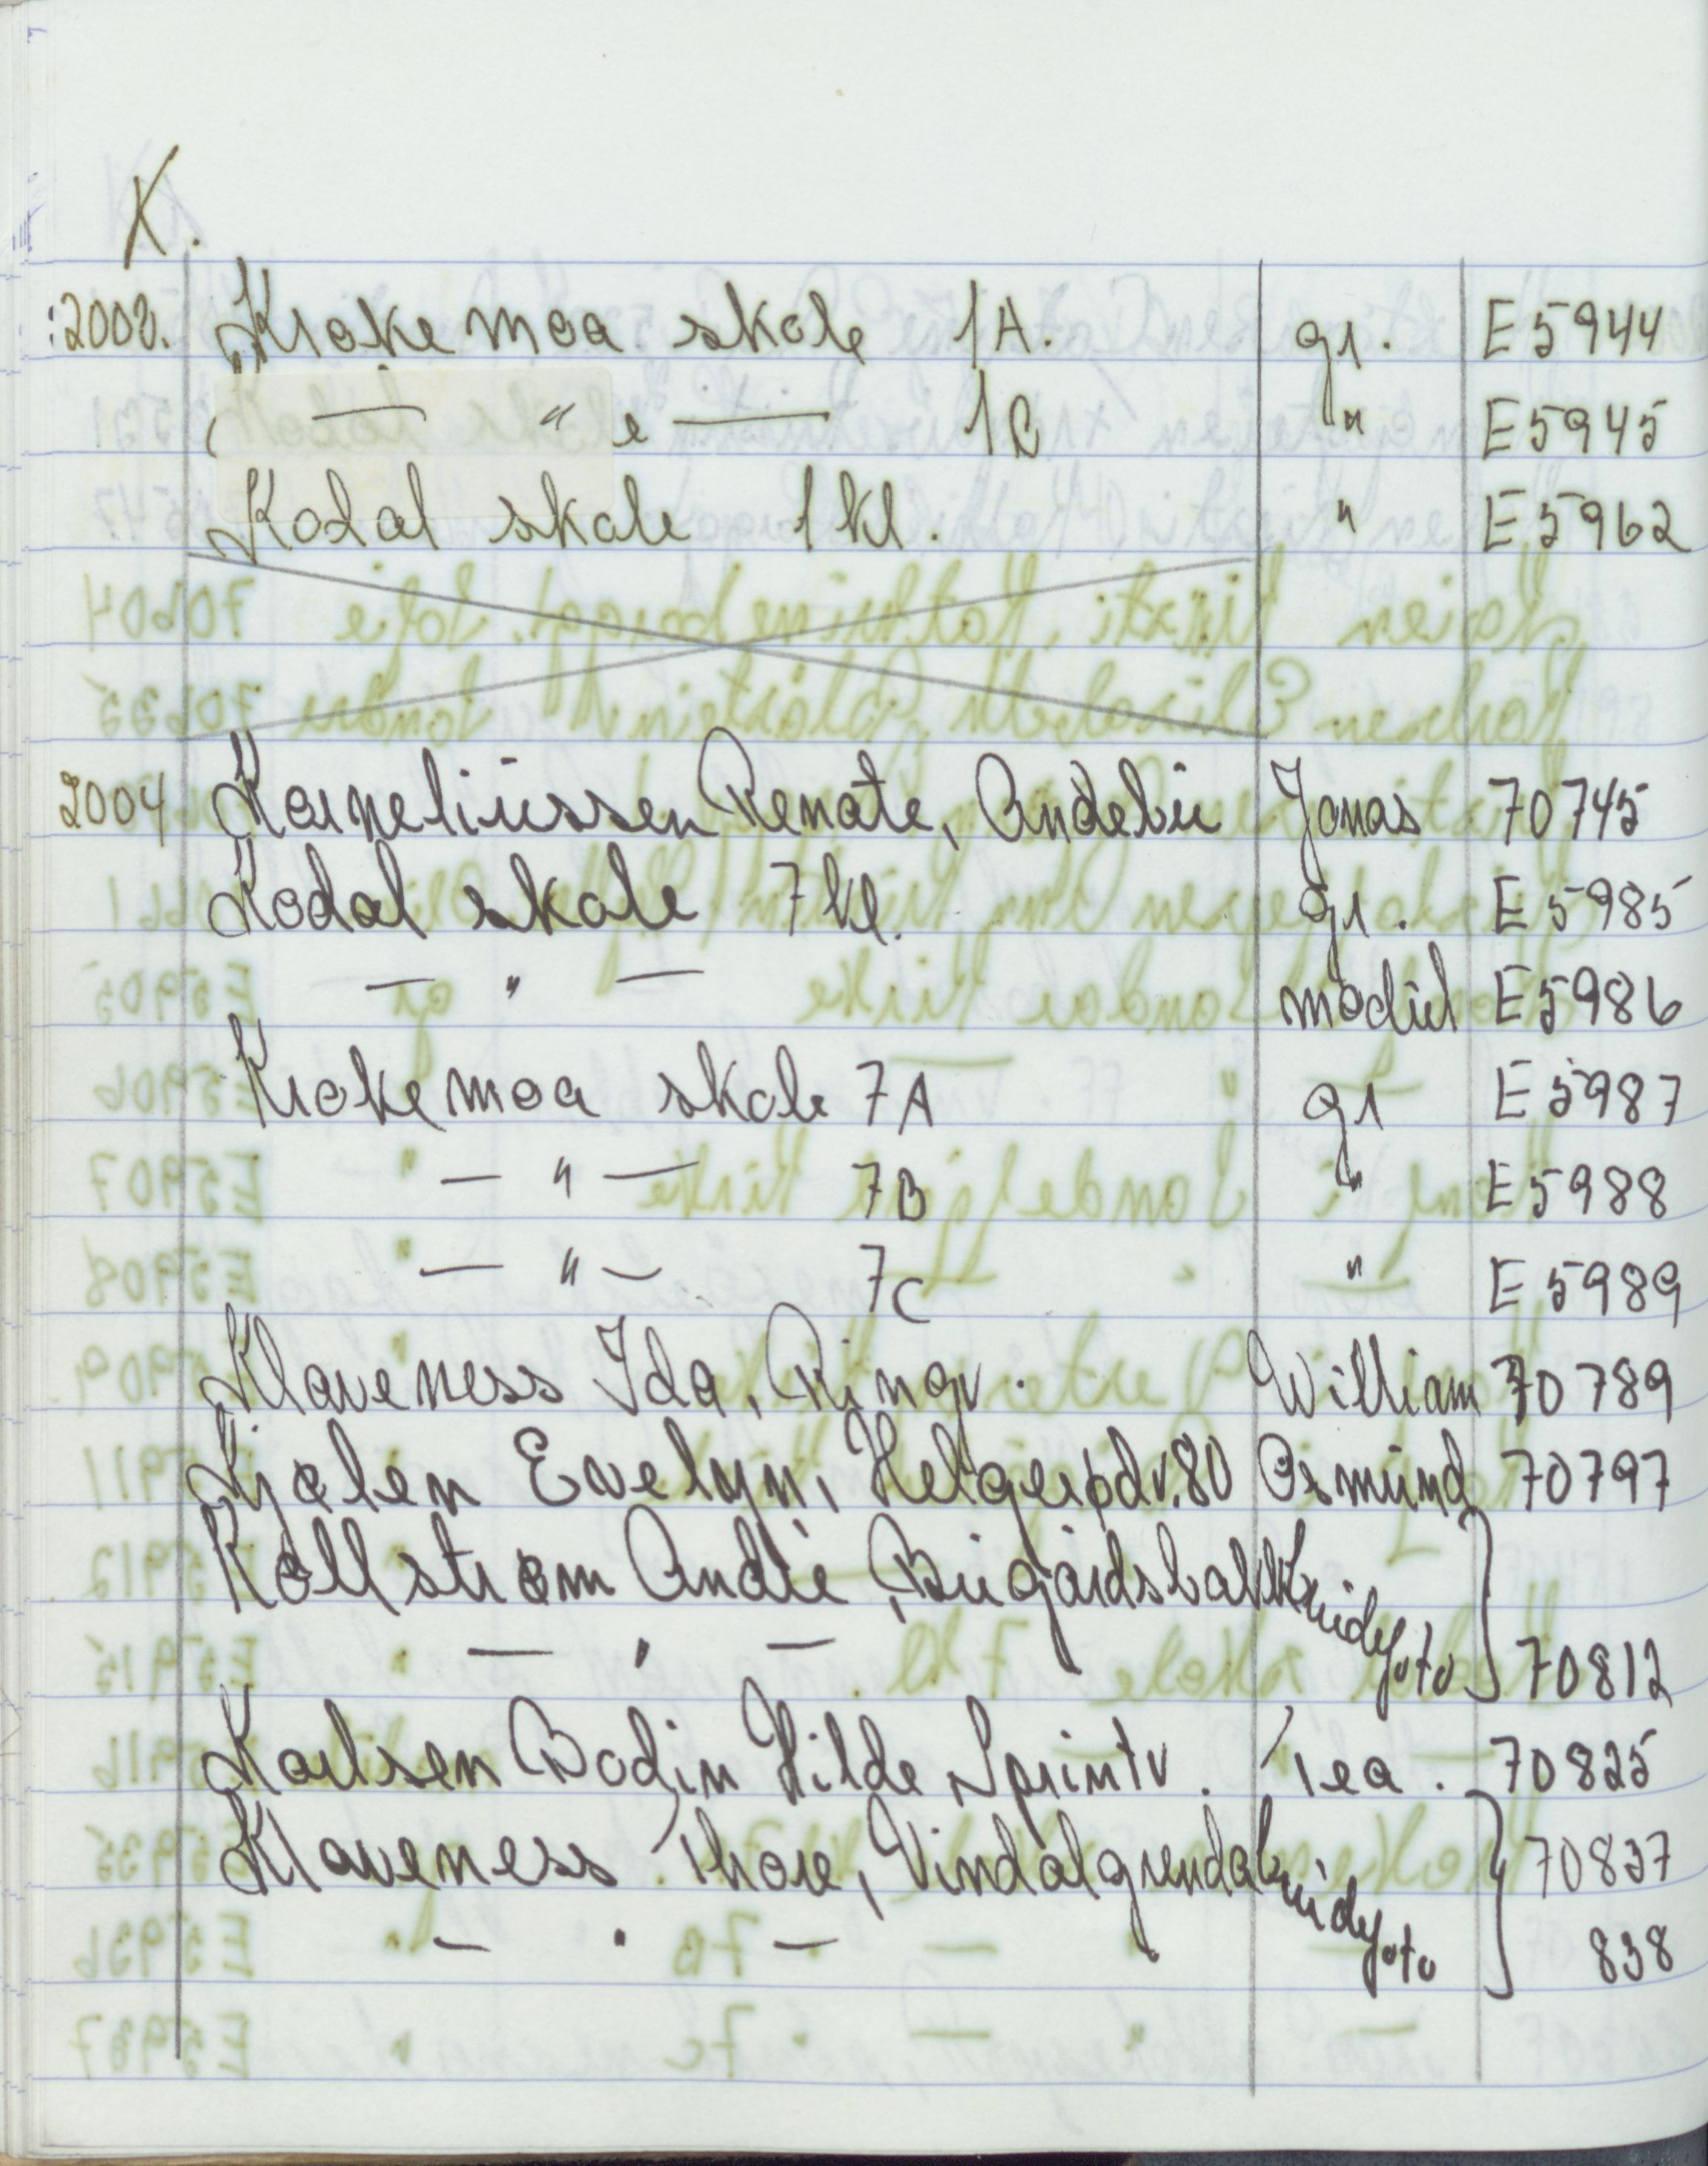 K.
:2000. Krokemoa skole 1A. gr. E5944
— " — 1C " E5945
Kodal skole 1 kl. " E5962
2004 Korneliussen Renate, Andebu Jonas 70745
Kodal skole 7 kl. gr. E5985
— " — modul E5986
Krokemoa skole 7A gr E5987
— " — 7B " E5988
— " — 7C " E5989
Klaveness Ida, Ringv. William 70789
Kjølen Evelyn, Helgerødv. 80 Osmund 70797
Kollstrøm André, Bugårdsbakk
— " — 70812
Karlsen Bodin Hilde Sprintv. Tea. 70825
Klaveness Thore, Vindalgrenda 70837
— " — 838